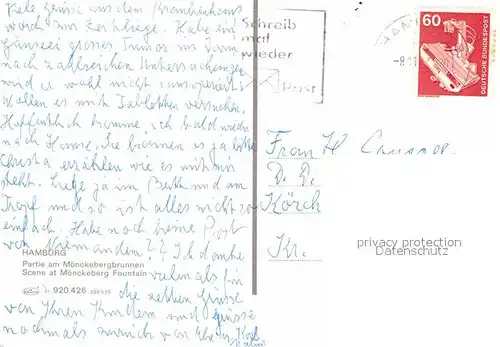 Viele Grüsse aus dem Krankenhaus
wo ich zur Zeit liege. Habe ein
grosser Tumor im Darm
nach zahlreichen Untersuchungen
wird er wohl nicht
Wollen es mit Tabletten versuchen.
Hoffentlich komme ich bald wieder
nach Hause. Sie können es ja bitte
Christa erzählen wie es mit mir
steht. Liege ja im Bett und am
Tropf und so ist alles nicht so
einfach. Habe noch keine Post
von Niemanden?? Ich danke
vielmals für
die netten Grüsse
von Ihren Kindern und grüsse
nochmals zurück von
HAMBURG
Partie am Mönckebergbrunnen
Scene at Mönckeberg Fountain
920.426
Schreib
mal
wieder
Post
60
DEUTSCHE BUNDESPOST
Frau H.
Körch
Kr.
privacy protection
Datenschutz